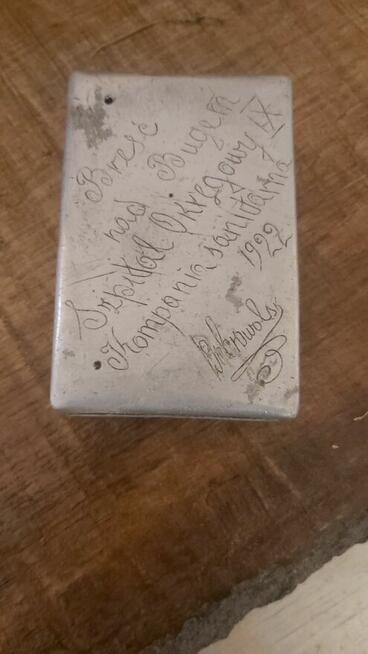 Brześć
nad Bugem
Szpital Okręgowy IX
Kompania sanitarna
1922